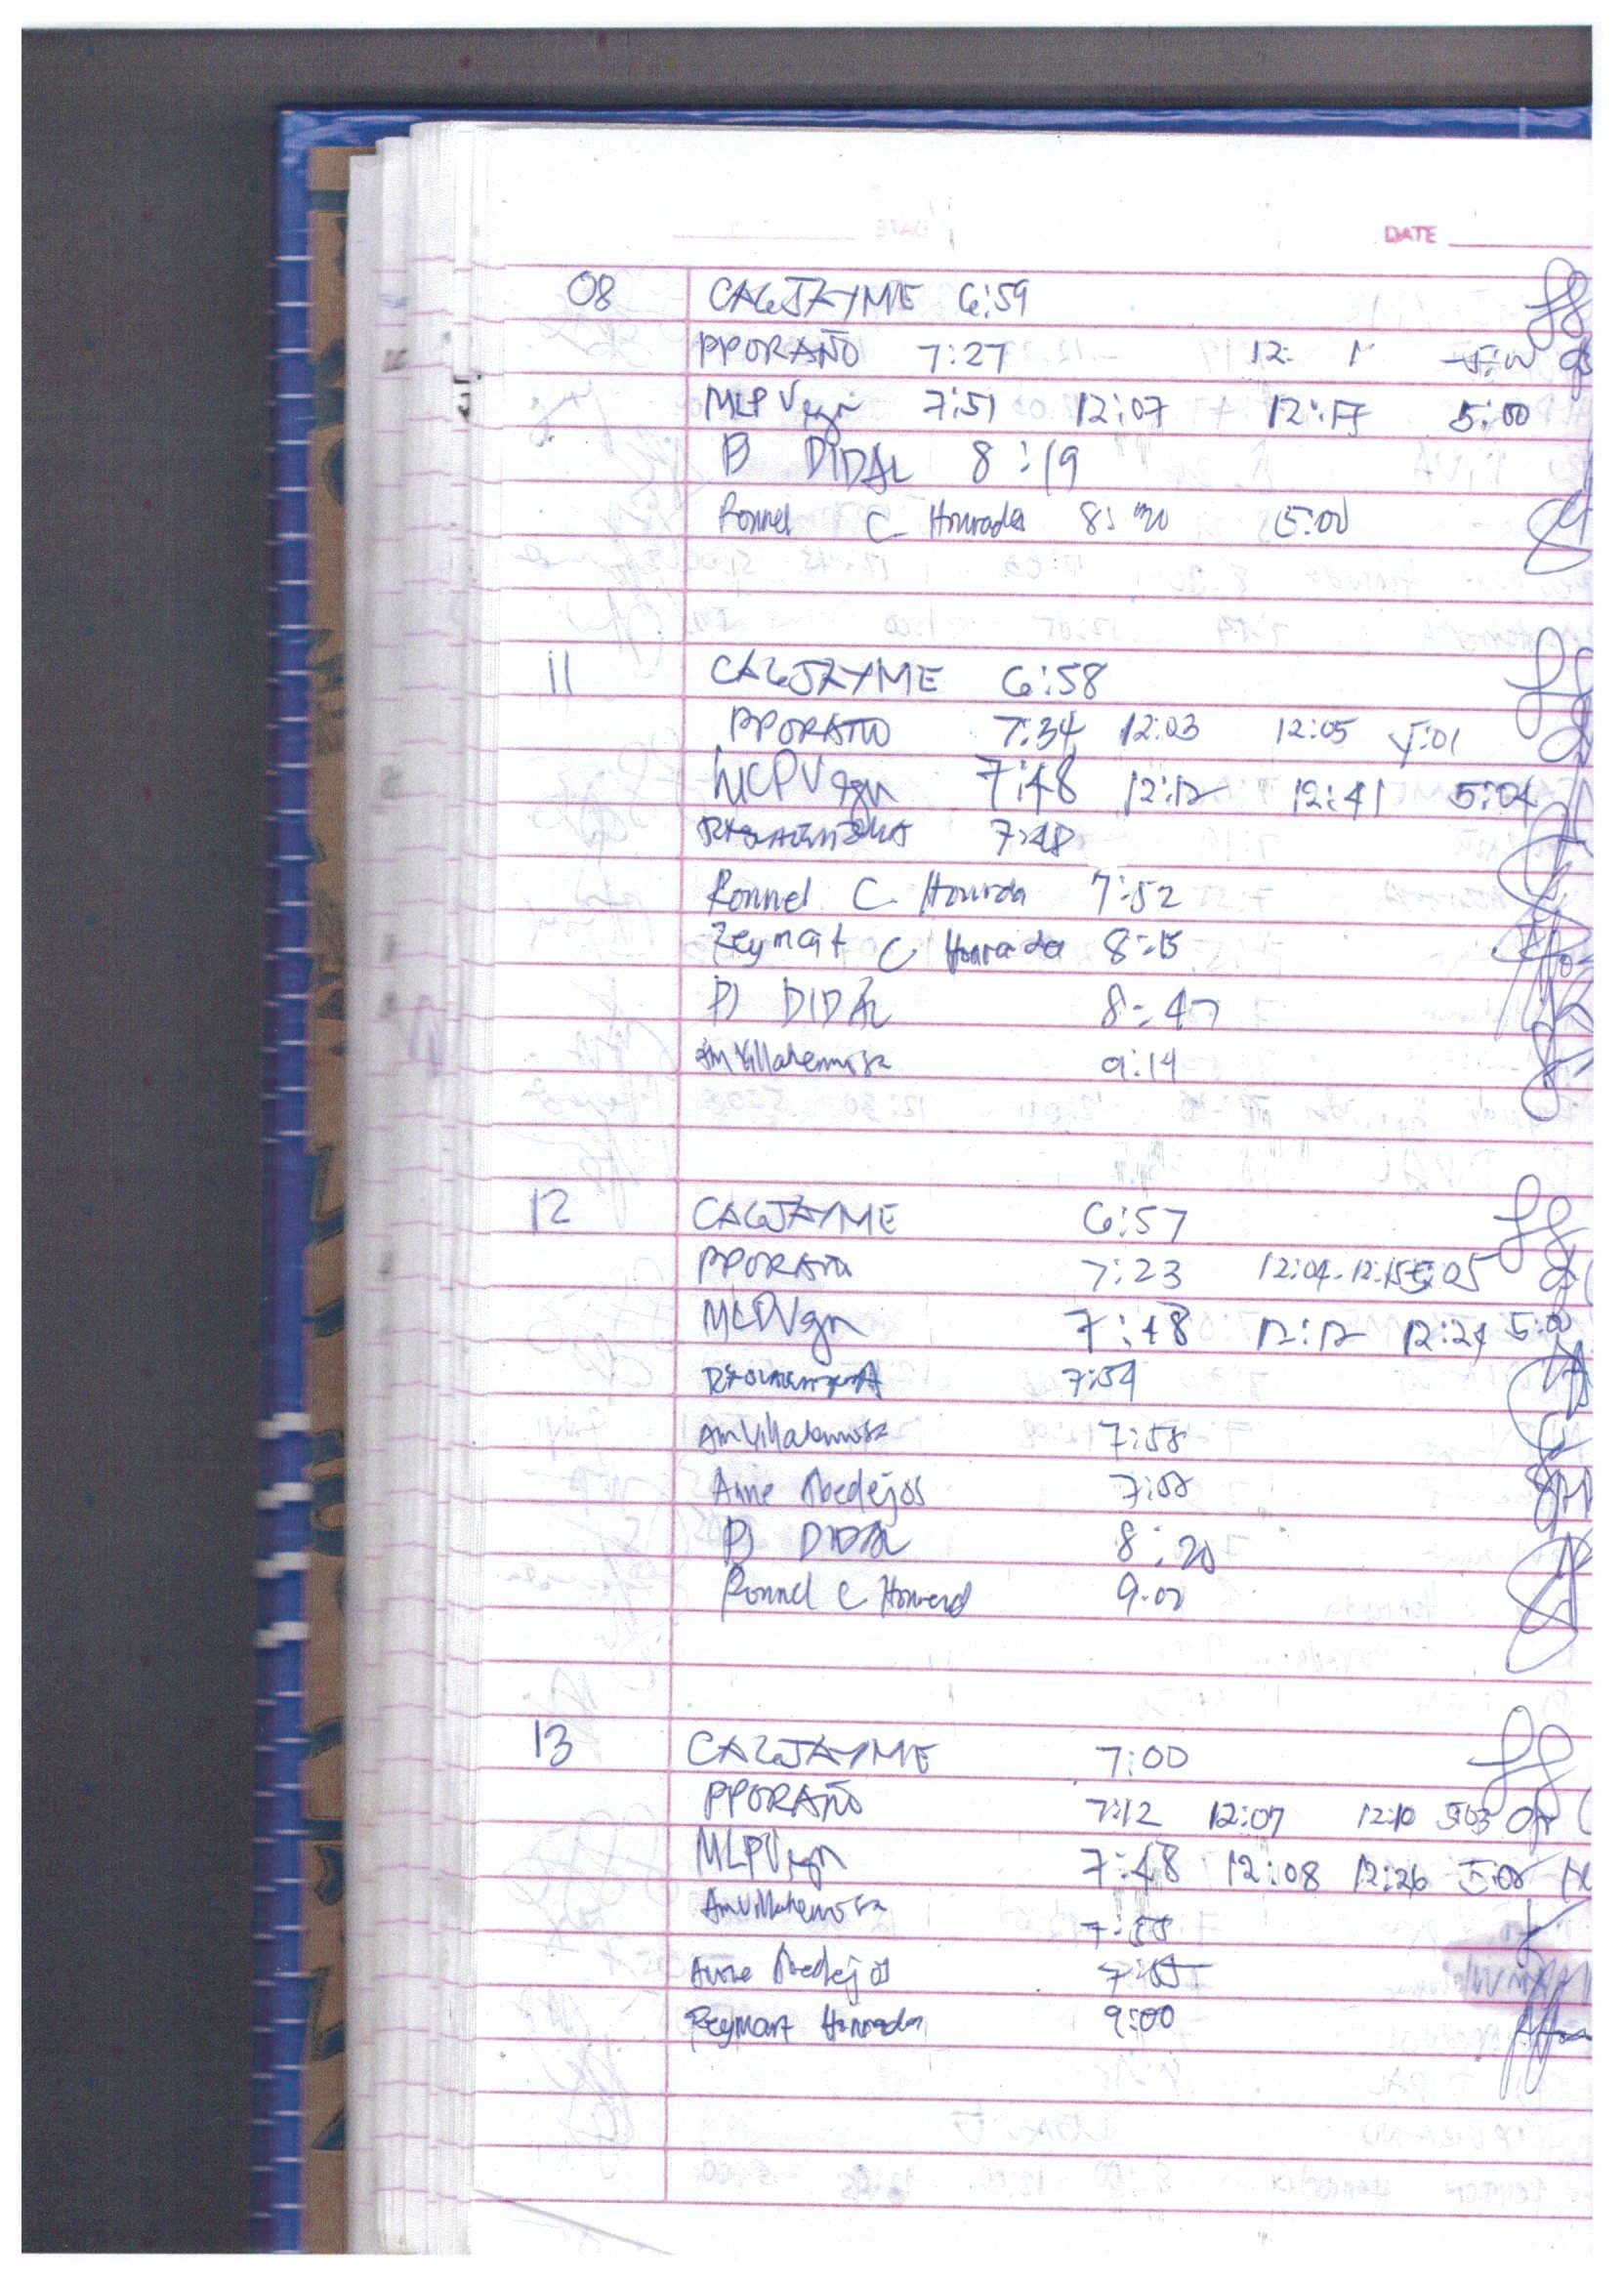 DATE
08 CAGJAYME 6:59
PPORAÑO 7:27 12: 5:00
MLPVgn 7:51 12:07 12:17 5:00
B DIDAL 8:19
Ronnel C Honrada 8:20 5:00
11 CAGJAYME 6:58
PPORAÑO 7:34 12:03 12:05 5:01
MLPVgn 7:48 12:12 12:41 5:04
7:48
Ronnel C. Honrda 7:52
Reymart C Honrada 8:15
B DIDAL 8:47
AmVillahermosa 9:14
12 CAGJAYME 6:57
PPORAÑO 7:23 12:04 12:15 5:05
MLPVgn 7:48 12:12 12:24 5:00
7:54
AmVillahermosa 7:58
Anne Abedejos 7:58
B DIDAL 8:20
Ronnel C Honrad 9:00
13 CAGJAYME 7:00
PPORAÑO 7:12 12:07 12:10 5:03
MLPVgn 7:48 12:08 12:26 5:00
AmVillahermosa 7:55
Anne Abedejos 7:55
Reymart Honrada 9:00